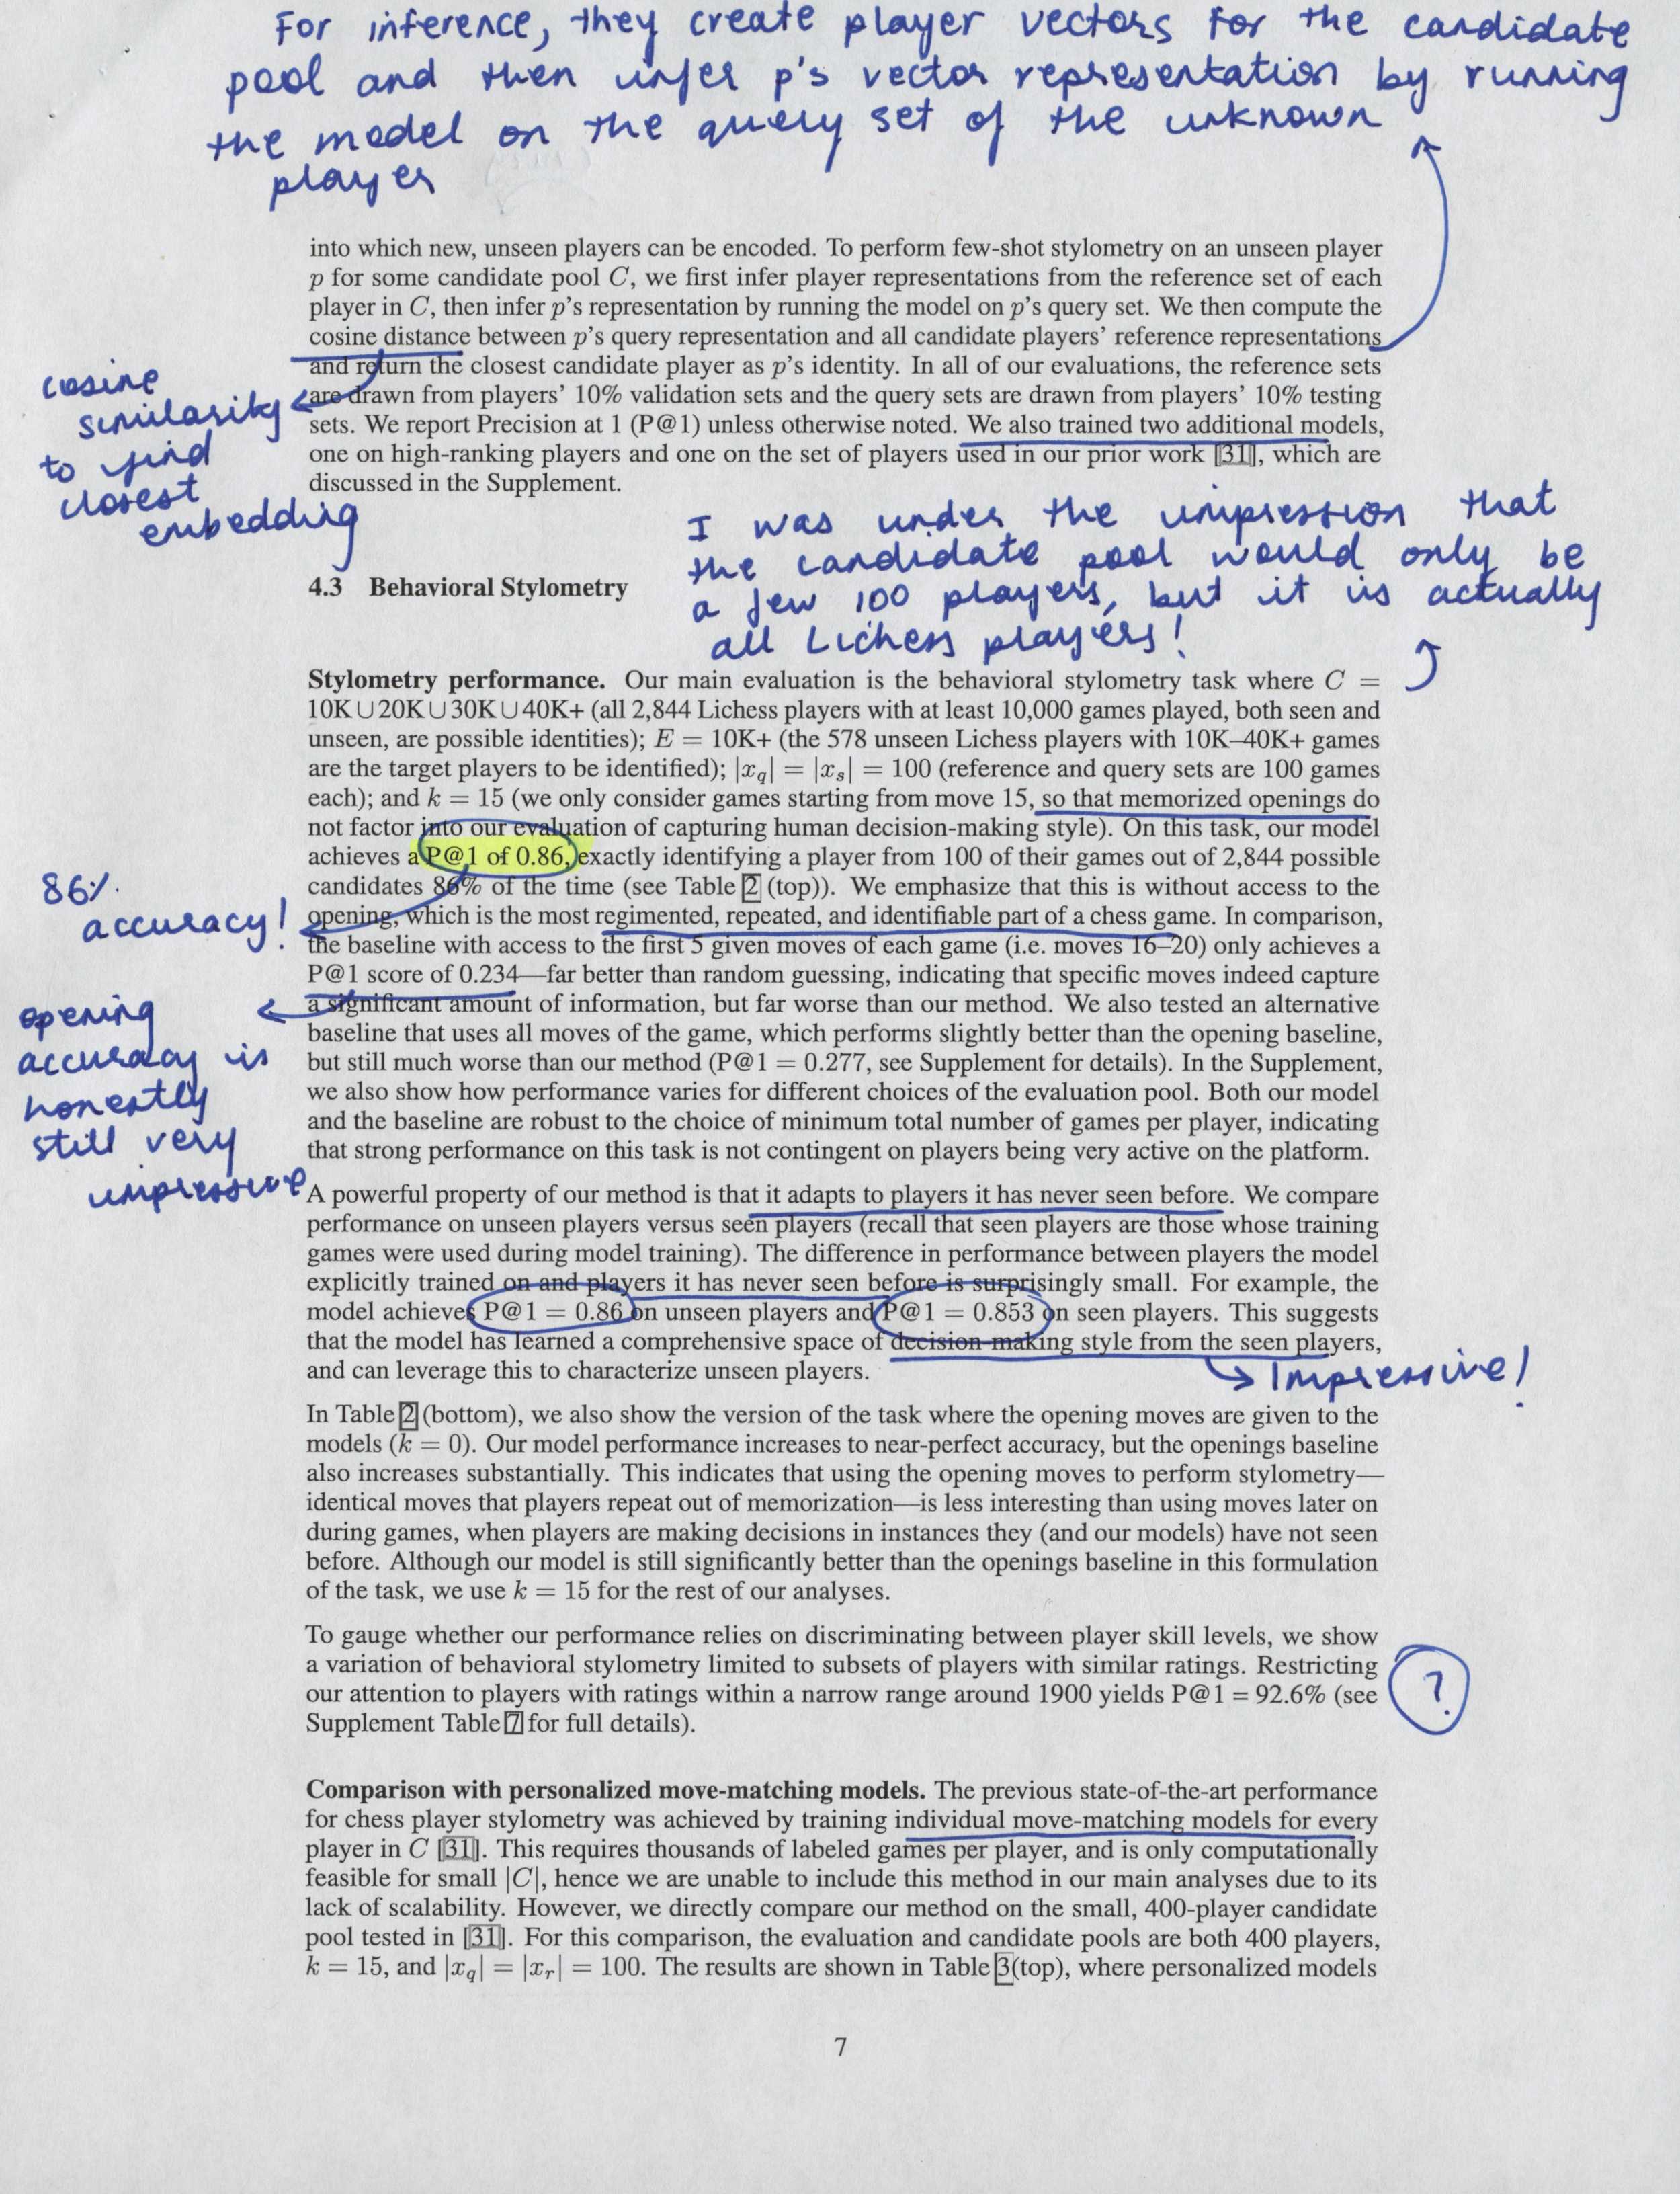 For inference, they create player vectors for the candidate
pool and then infer p's vector representation by running
the model on the query set of the unknown
player
into which new, unseen players can be encoded. To perform few-shot stylometry on an unseen player
p for some candidate pool C, we first infer player representations from the reference set of each
player in C, then infer p's representation by running the model on p's query set. We then compute the
cosine distance between p's query representation and all candidate players' reference representations
and return the closest candidate player as p's identity. In all of our evaluations, the reference sets
are drawn from players' 10% validation sets and the query sets are drawn from players' 10% testing
sets. We report Precision at 1 (P@1) unless otherwise noted. We also trained two additional models,
one on high-ranking players and one on the set of players used in our prior work [31], which are
discussed in the Supplement.
cosine
similarity
to find
closest
embedding
I was under the impression that
the candidate pool would only be
a few 100 players, but it is actually
all Lichess players!
4.3 Behavioral Stylometry
Stylometry performance. Our main evaluation is the behavioral stylometry task where C =
10K ∪ 20K ∪ 30K ∪ 40K+ (all 2,844 Lichess players with at least 10,000 games played, both seen and
unseen, are possible identities); E = 10K+ (the 578 unseen Lichess players with 10K–40K+ games
are the target players to be identified); |x_q| = |x_s| = 100 (reference and query sets are 100 games
each); and k = 15 (we only consider games starting from move 15, so that memorized openings do
not factor into our evaluation of capturing human decision-making style). On this task, our model
achieves a P@1 of 0.86, exactly identifying a player from 100 of their games out of 2,844 possible
candidates 86% of the time (see Table 2 (top)). We emphasize that this is without access to the
opening, which is the most regimented, repeated, and identifiable part of a chess game. In comparison,
the baseline with access to the first 5 given moves of each game (i.e. moves 16–20) only achieves a
P@1 score of 0.234—far better than random guessing, indicating that specific moves indeed capture
a significant amount of information, but far worse than our method. We also tested an alternative
baseline that uses all moves of the game, which performs slightly better than the opening baseline,
but still much worse than our method (P@1 = 0.277, see Supplement for details). In the Supplement,
we also show how performance varies for different choices of the evaluation pool. Both our model
and the baseline are robust to the choice of minimum total number of games per player, indicating
that strong performance on this task is not contingent on players being very active on the platform.
86%
accuracy!
opening
accuracy is
honestly
still very
impressive
A powerful property of our method is that it adapts to players it has never seen before. We compare
performance on unseen players versus seen players (recall that seen players are those whose training
games were used during model training). The difference in performance between players the model
explicitly trained on and players it has never seen before is surprisingly small. For example, the
model achieves P@1 = 0.86 on unseen players and P@1 = 0.853 on seen players. This suggests
that the model has learned a comprehensive space of decision-making style from the seen players,
and can leverage this to characterize unseen players.
Impressive!
In Table 2 (bottom), we also show the version of the task where the opening moves are given to the
models (k = 0). Our model performance increases to near-perfect accuracy, but the openings baseline
also increases substantially. This indicates that using the opening moves to perform stylometry—
identical moves that players repeat out of memorization—is less interesting than using moves later on
during games, when players are making decisions in instances they (and our models) have not seen
before. Although our model is still significantly better than the openings baseline in this formulation
of the task, we use k = 15 for the rest of our analyses.
To gauge whether our performance relies on discriminating between player skill levels, we show
a variation of behavioral stylometry limited to subsets of players with similar ratings. Restricting
our attention to players with ratings within a narrow range around 1900 yields P@1 = 92.6% (see
Supplement Table 7 for full details).
?
Comparison with personalized move-matching models. The previous state-of-the-art performance
for chess player stylometry was achieved by training individual move-matching models for every
player in C [31]. This requires thousands of labeled games per player, and is only computationally
feasible for small |C|, hence we are unable to include this method in our main analyses due to its
lack of scalability. However, we directly compare our method on the small, 400-player candidate
pool tested in [31]. For this comparison, the evaluation and candidate pools are both 400 players,
k = 15, and |x_q| = |x_r| = 100. The results are shown in Table 3(top), where personalized models
7